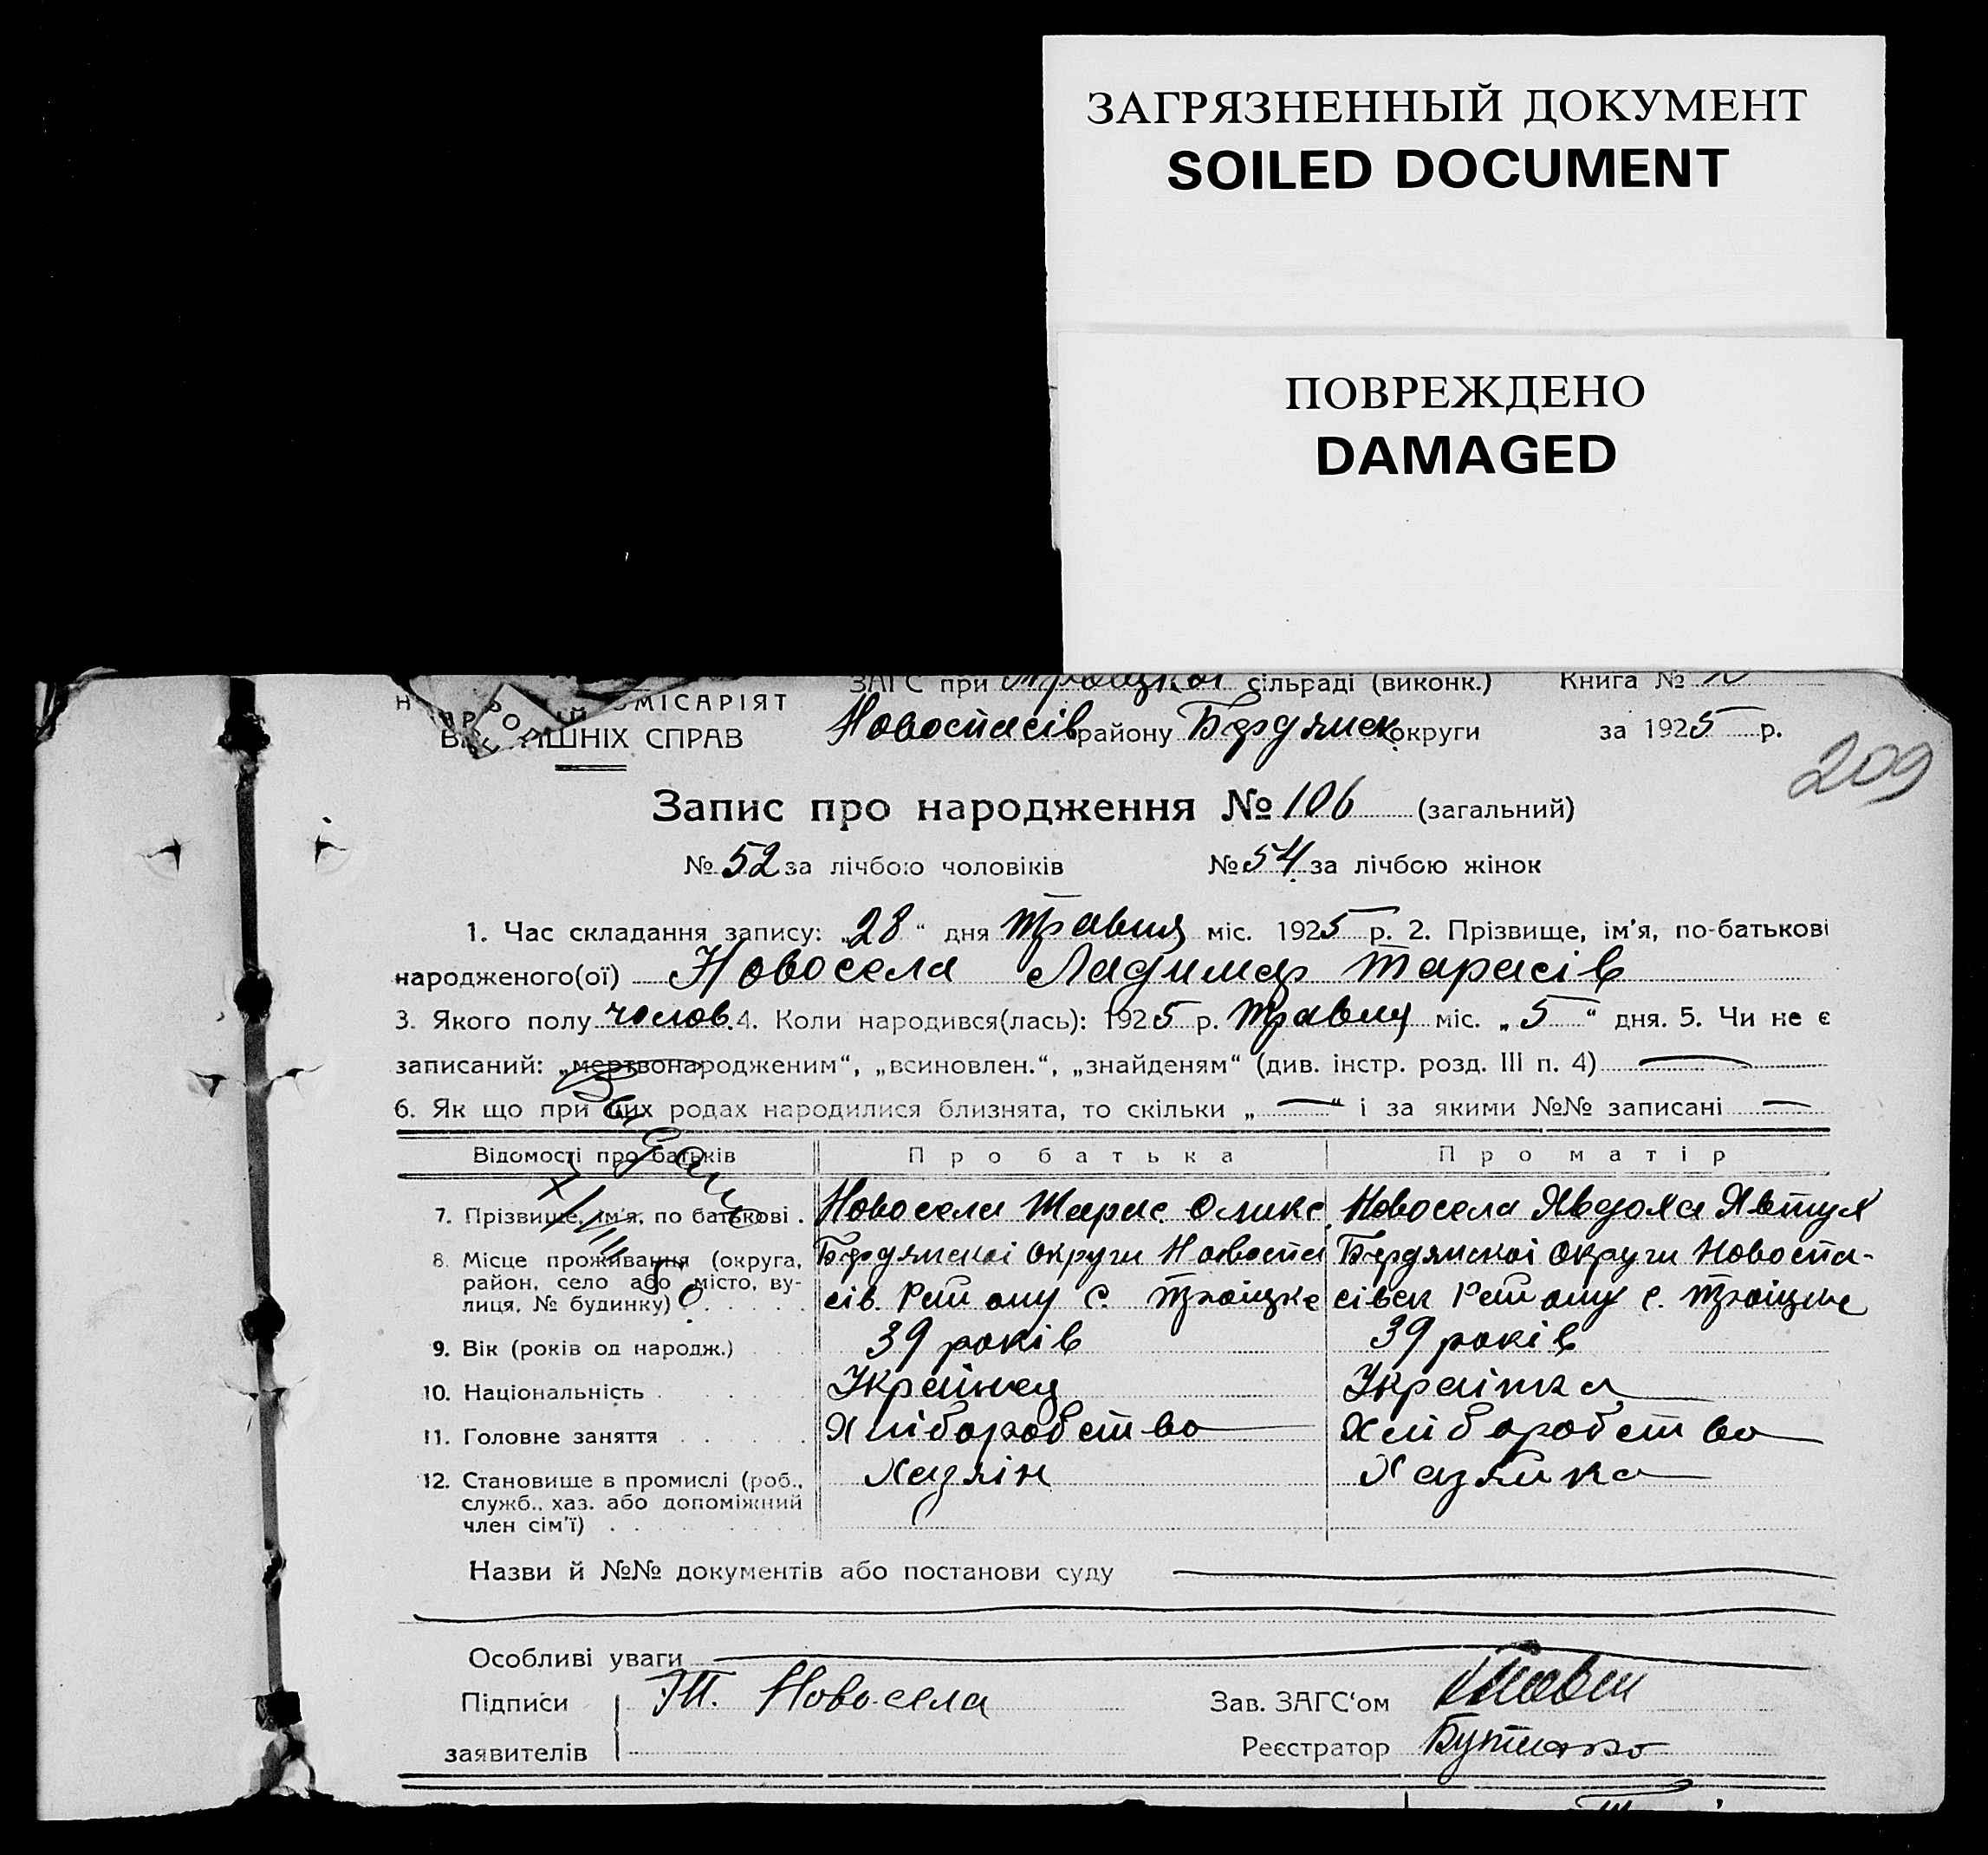 ЗАГРЯЗНЕННЫЙ ДОКУМЕНТ
SOILED DOCUMENT
ПОВРЕЖДЕНО
DAMAGED
ЗАГС при Троіцкої сільраді (виконк.) Книга №
ОМІСАРІЯТ
ІШНІХ СПРАВ Новоспасів району Бердянськ округи за 1925 р.
209
Запис про народження № 106 (загальний)
№ 52 за лічбою чоловіків № 54 за лічбою жінок
1. Час складання запису: „28“ дня Травня міс. 1925 р. 2. Прізвище, ім'я, по-батькові
народженого(ої) Новосела Ладимер Тарасів
3. Якого полу чолов. 4. Коли народився(лась): 1925 р. Травня міс. „5“ дня. 5. Чи не є
записаний: „мертвонародженим“, „всиновлен.“, „знайденям“ (див. інстр. розд. III п. 4)
6. Як що при цих родах народилися близнята, то скільки „—“ і за якими №№ записані —
Відомості про батьків Про батька Про матір
7. Прізвище, ім'я, по батькові . Новосела Тарас Новосела Явдоха
8. Місце проживання (округа, район, село або місто, вулиця, № будинку) Бердянскої округи Новоспа Бердянскої округи Новоспа-
сів. Району с. Троіцке сівск Району с. Троіцке
9. Вік (років од народж.) 39 років 39 років
10. Національність Українец Українка
11. Головне заняття Хліборобство Хліборобство
12. Становище в промислі (роб., Хазяін Хазяйка
служб., хаз. або допоміжний
член сім'ї)
Назви й №№ документів або постанови суду
Особливі уваги
Підписи Т. Новосела Зав. ЗАГС'ом
заявителів Реєстратор Бутенко